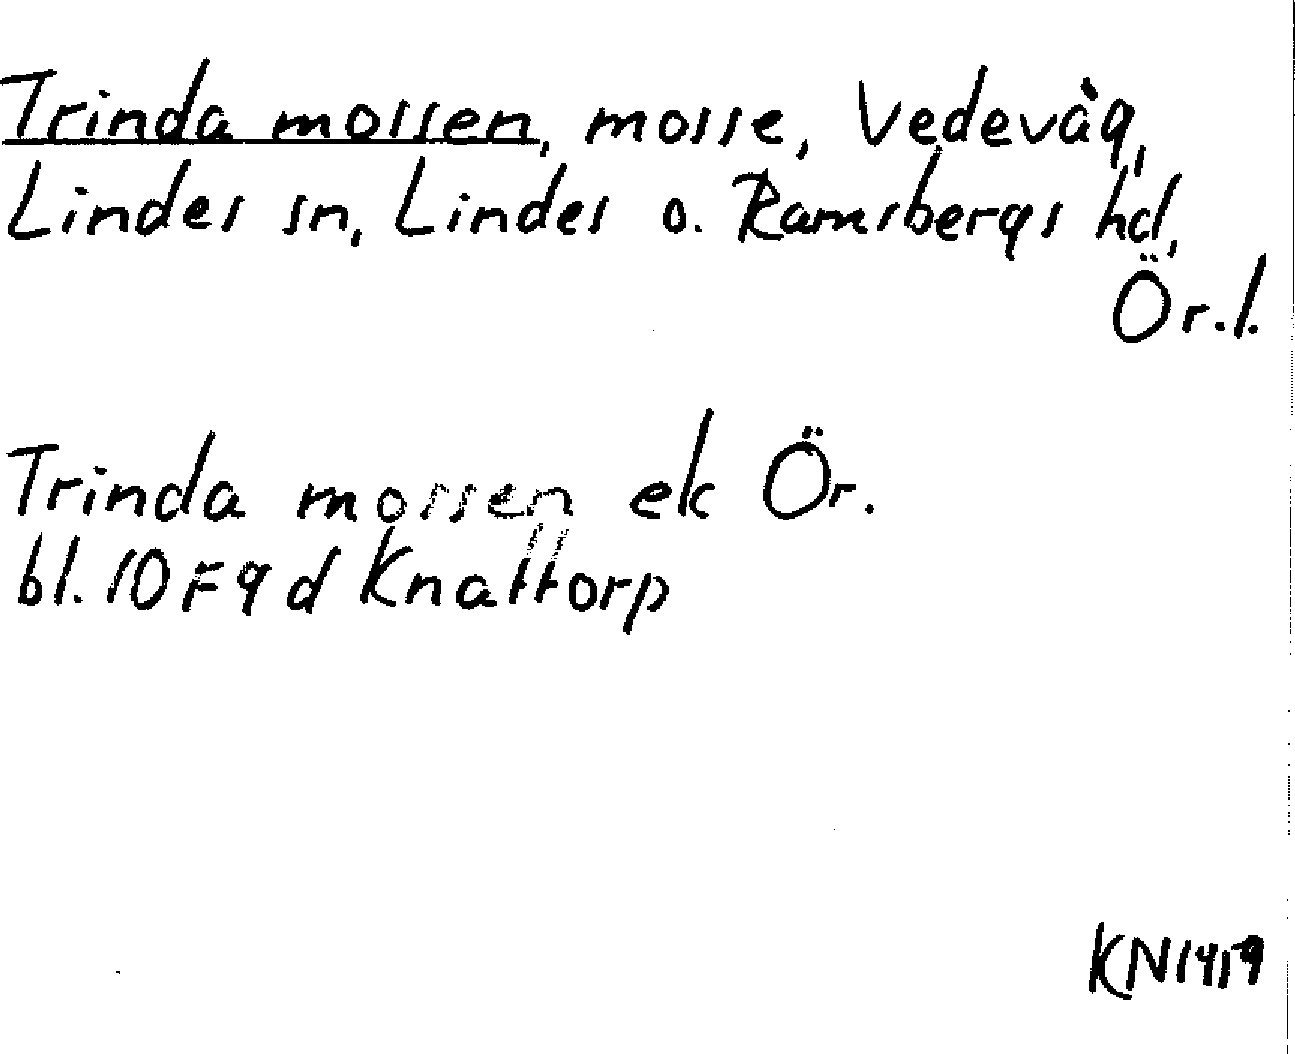 Trinda mossen, mosse, Vedevåg,
Lindes sn, Lindes o. Ramsbergs hd,
Ör.l.
Trinda mossen ek Ör.
bl. 10F9d Knattorp
KN1419